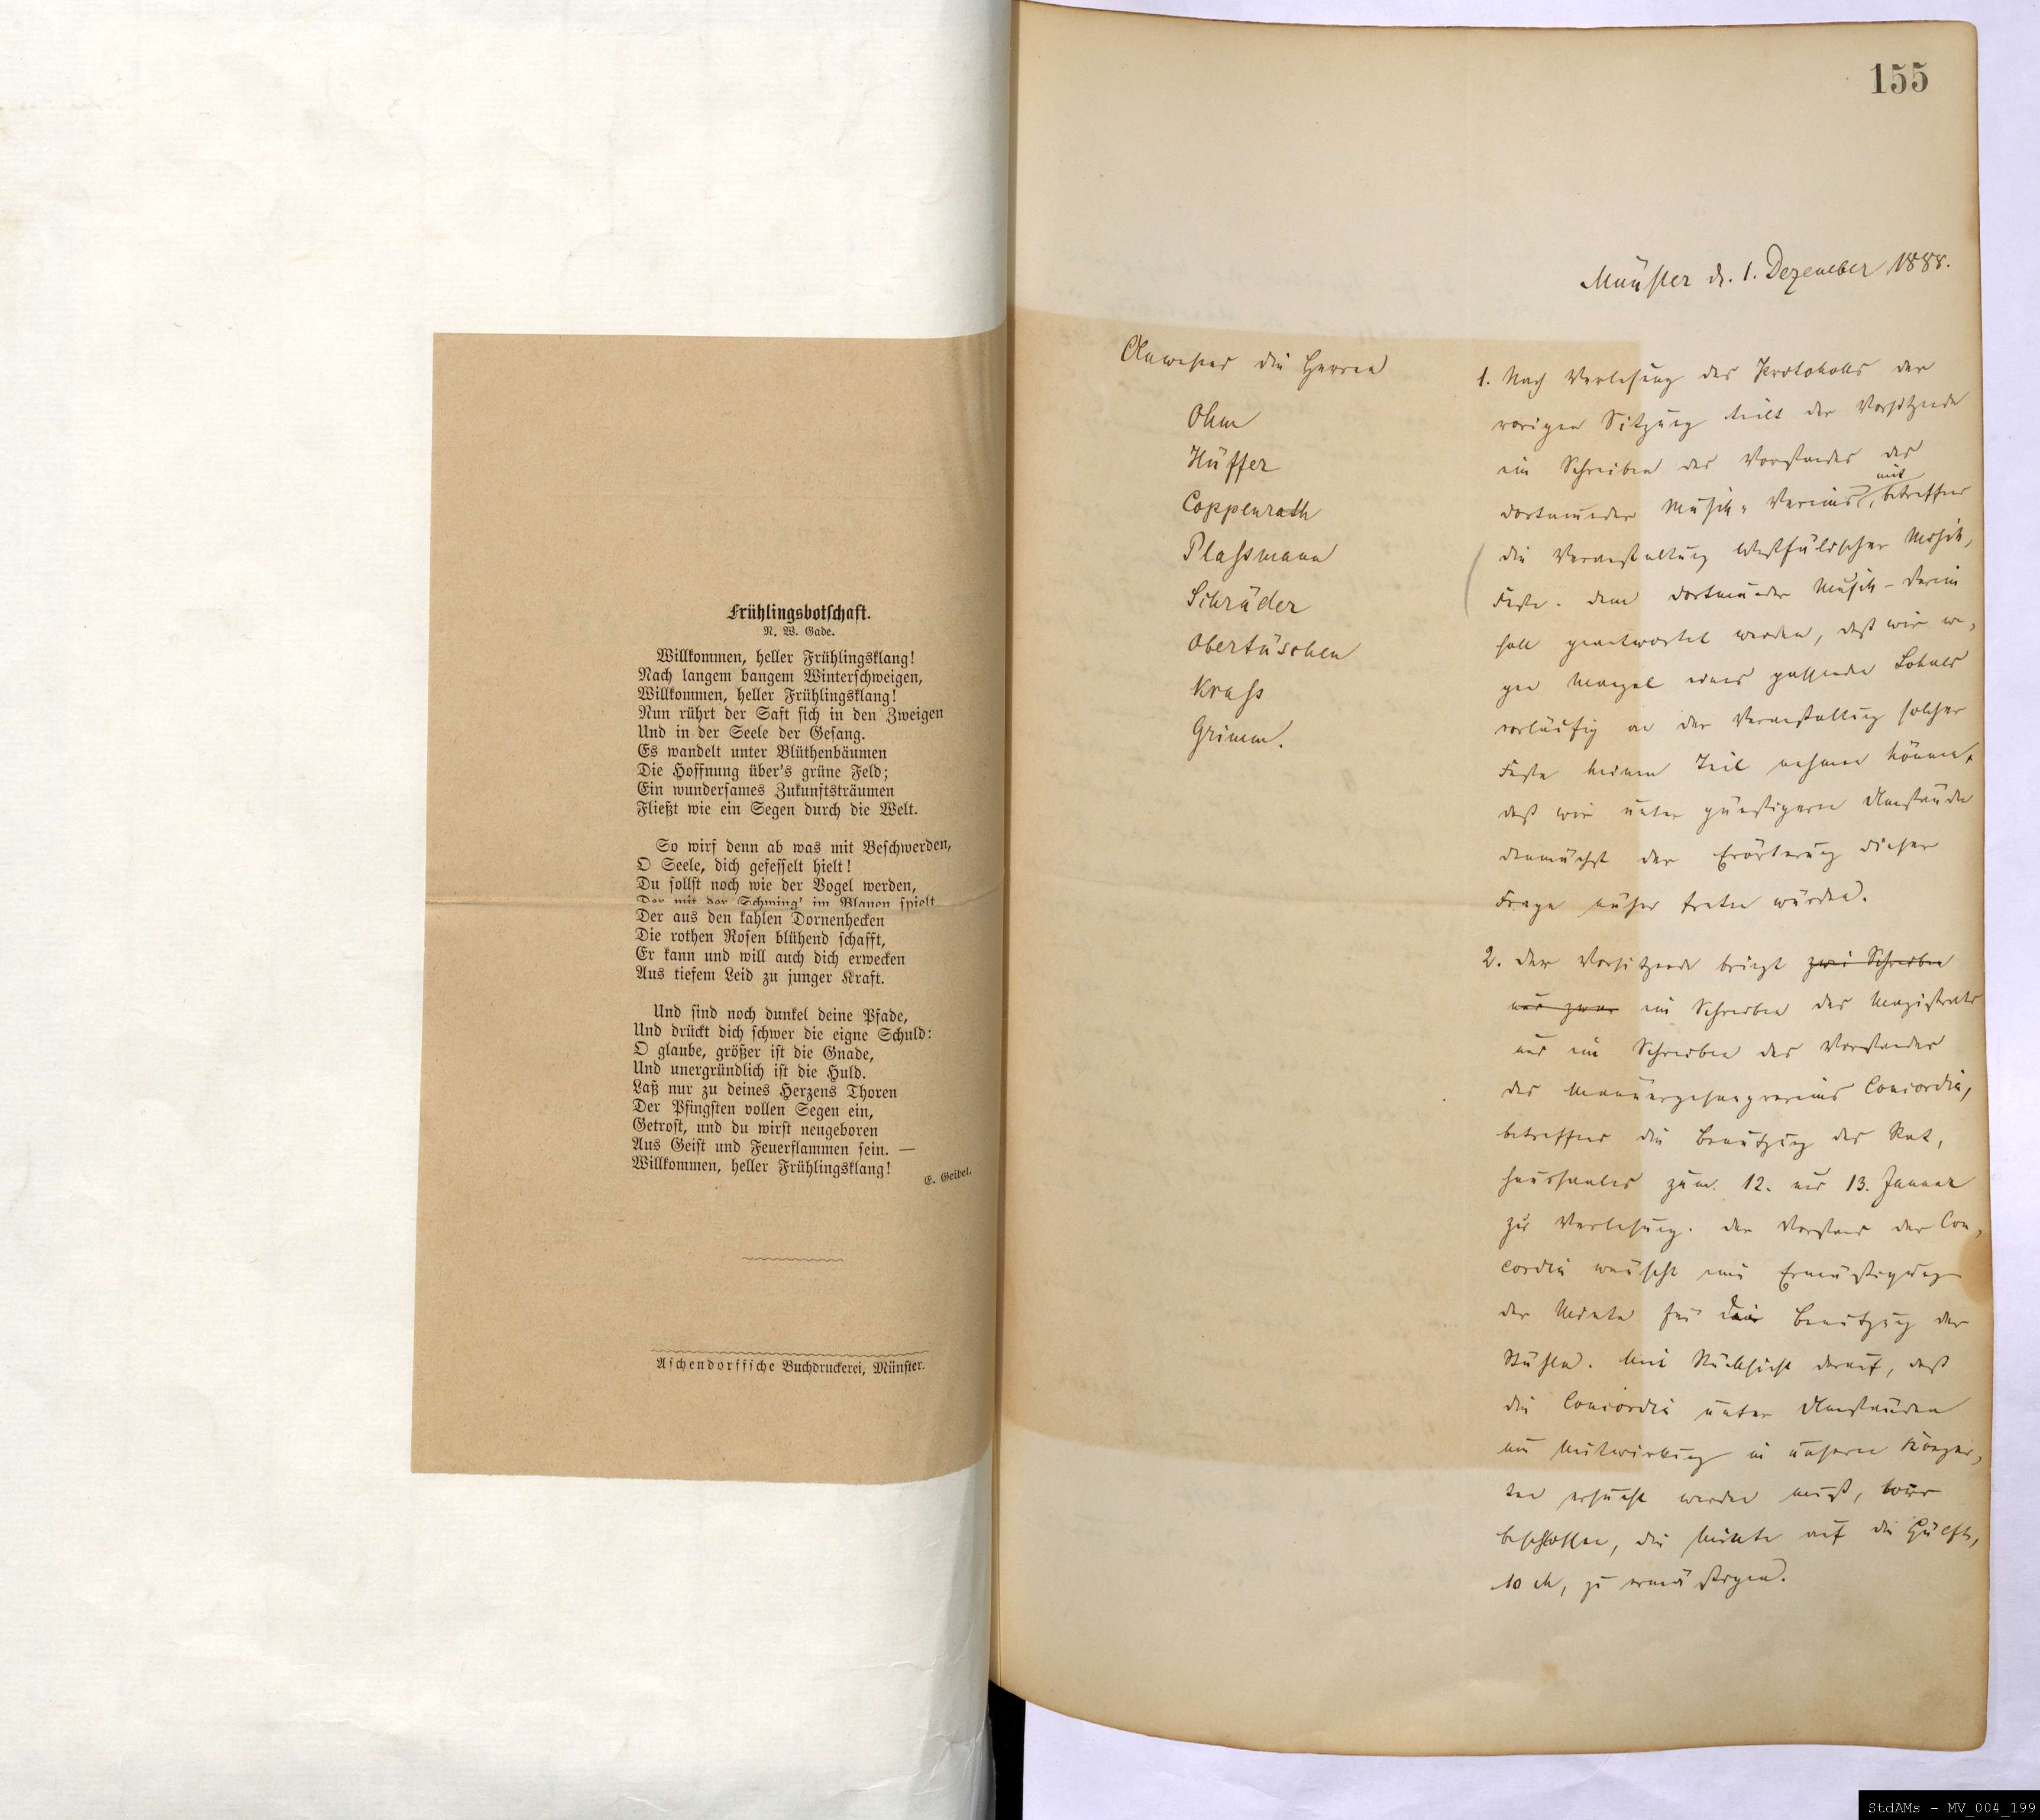 Frühlingsbotschaft.
N. W. Gade.
Willkommen, heller Frühlingsklang!
Nach langem bangem Winterschweigen,
Willkommen, heller Frühlingsklang!
Nun rührt der Saft sich in den Zweigen
Und in der Seele der Gesang.
Es wandelt unter Blüthenbäumen
Die Hoffnung über's grüne Feld;
Ein wundersames Zukunftsträumen
Fließt wie ein Segen durch die Welt.
So wirf denn ab was mit Beschwerden,
O Seele, dich gefesselt hielt!
Du sollst noch wie der Vogel werden,
Der mit der Schwing' im Blauen spielt
Der aus den kahlen Dornenhecken
Die rothen Rosen blühend schafft,
Er kann und will auch dich erwecken
Aus tiefem Leid zu junger Kraft.
Und sind noch dunkel deine Pfade,
Und drückt dich schwer die eigne Schuld:
O glaube, größer ist die Gnade,
Und unergründlich ist die Huld.
Laß nur zu deines Herzens Thoren
Der Pfingsten vollen Segen ein,
Getrost, und du wirst neugeboren
Aus Geist und Feuerflammen sein. —
Willkommen, heller Frühlingsklang!
E. Geibel.
Aschendorffsche Buchdruckerei, Münster.
155
Münster d. 1. Dezember 1888.
Anwesend die Herren
Ohm
Hüffer
Coppenrath
Plassmann
Schräder
Obertüschen
Krass
Grimm.
1. Nach Verlesung des Protokolls der
vorigen Sitzung teilt der Vorsitzende
ein Schreiben des Vorstandes des
dortmunder Musik-Vereins mit, betreffend
die Veranstaltung Westfälischer Musik-
Feste. Dem dortmunder Musik-Verein
soll geantwortet werden, daß wir we-
gen Mangel eines passenden Lokales
vorläufig an der Veranstaltung solcher
Feste keinen Teil nehmen können,
daß wir unter günstigern Umständen
demnächst der Erörterung dieser
Frage näher treten würden.
2. Der Vorsitzende bringt zwei Schreiben
und zwar ein Schreiben des Magistrats
und ein Schreiben des Vorstandes
des Männergesangvereins Concordia,
betreffend die Benutzung des Rat-
haussaales zum 12. und 13. Januar
zur Verlesung. Der Vorstand der Con-
cordia wünscht eine Ermäßigung
der Miete für die Benutzung der
Stühle. Mit Rücksicht darauf, daß
die Concordia unter Umständen
um Mitwirkung in unseren Konzer-
ten ersucht werden muß, wird
beschlossen, die Miete auf die Hälfte,
10 M, zu ermäßigen.
StdAMs - MV_004_199